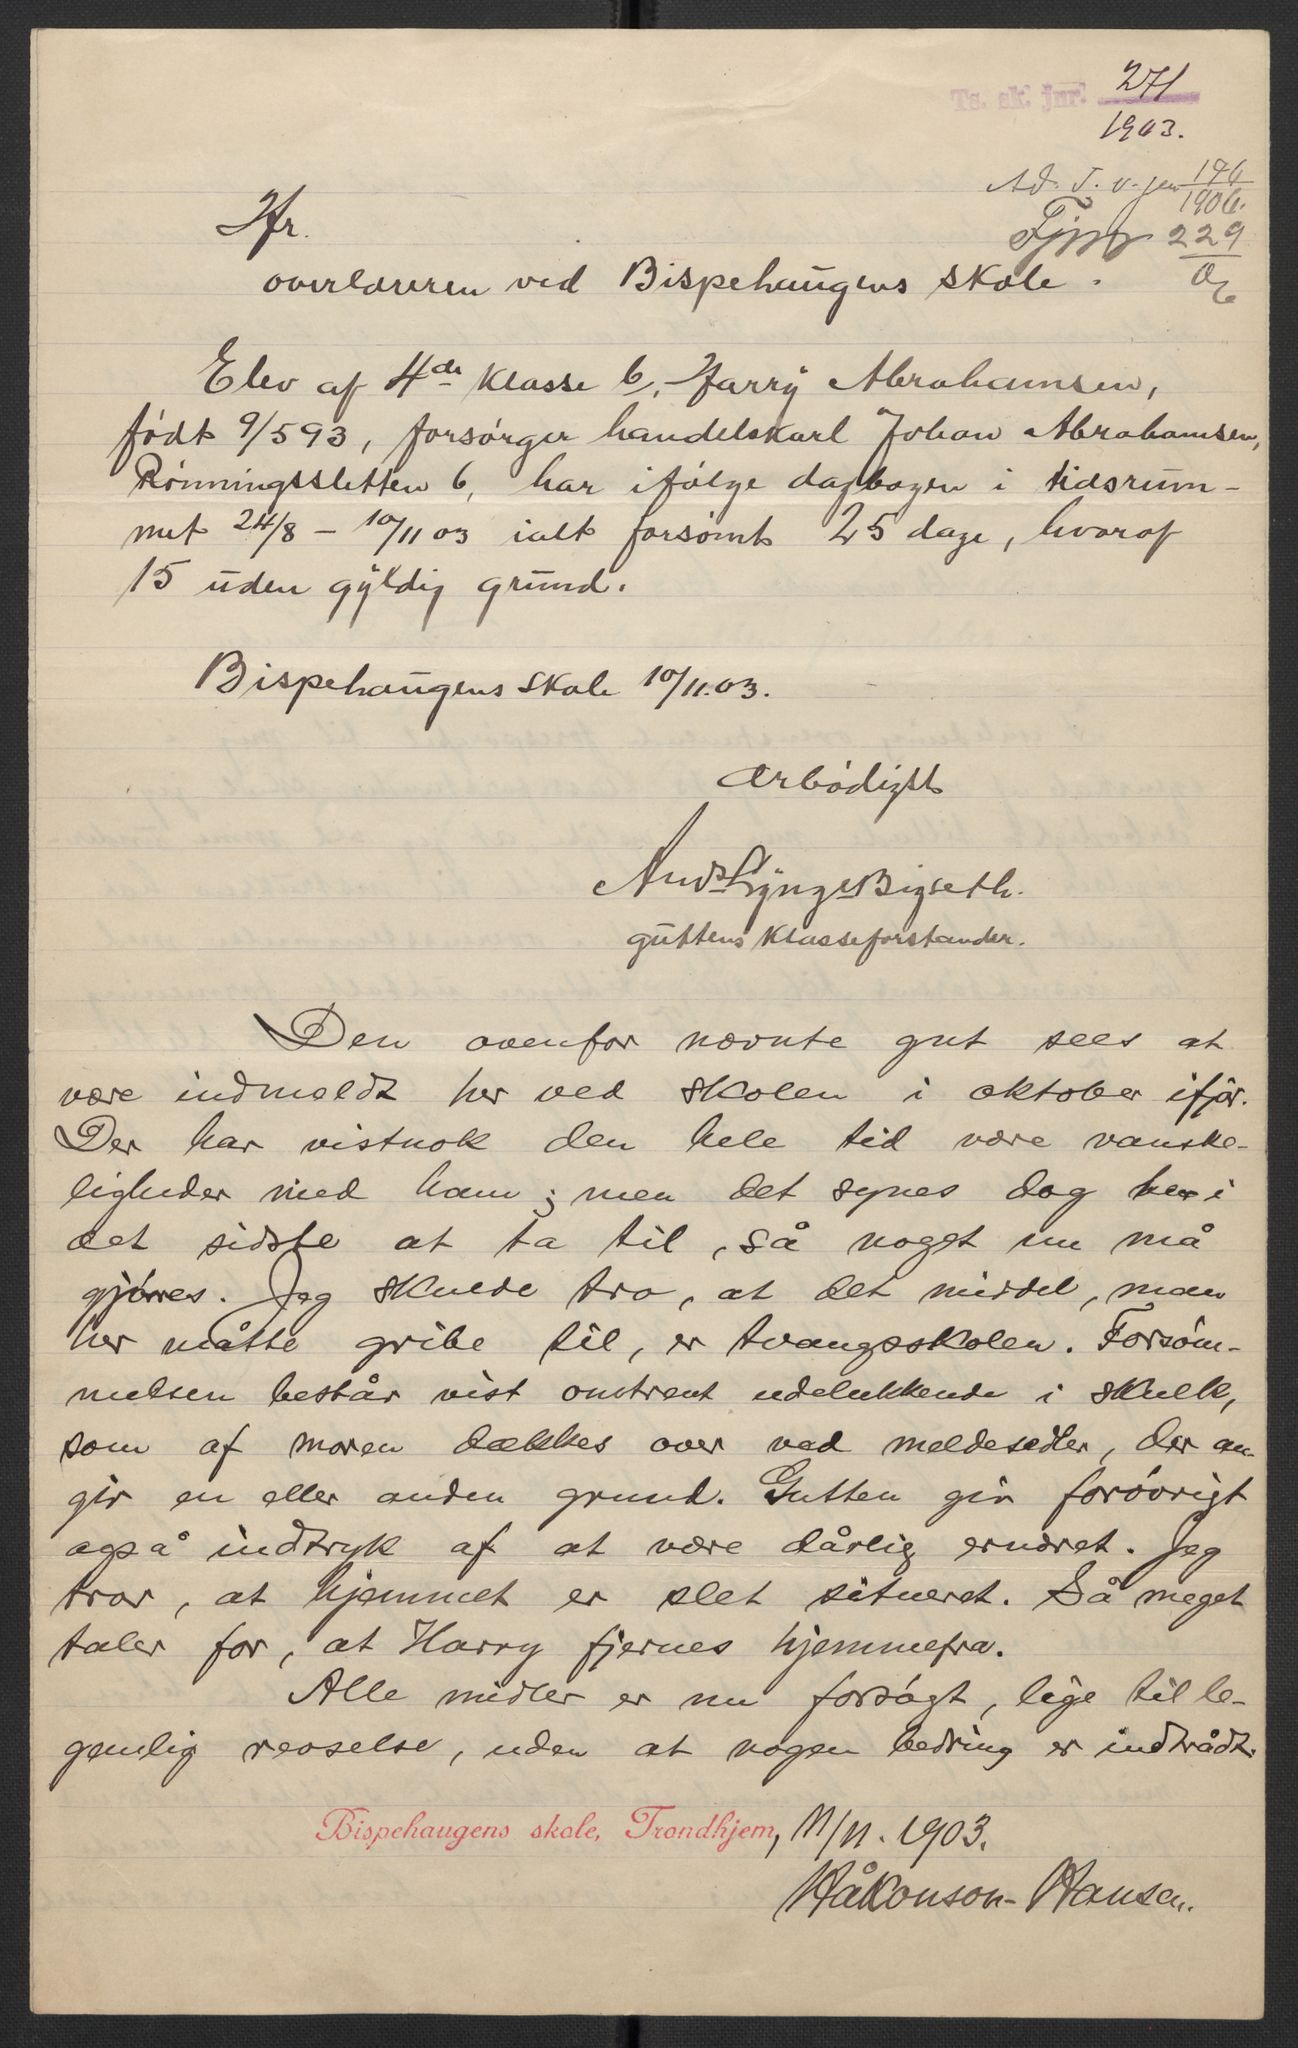 Ts. sk. jnr. 271
1903.
Ad. T. v. jnr 196
1906.
229
06
Hr.
overlæreren ved Bispehaugens skole.
Elev af 4de klasse b, Harry Abrahamsen,
født 9/5 93, forsørger handelskarl Johan Abrahamsen,
Rønningssletten 6, har ifølge dagbogen i tidsrum-
met 24/8 - 10/11 03 ialt forsømt 25 dage, hvoraf
15 uden gyldig grund.
Bispehaugens skole 10/11.03.
Ærbødigst
Ands Lyngs Bigseth.
guttens klasseforstander.
Den ovenfor nævnte gut sees at
være indmeldt her ved skolen i oktober ifjór.
Der har vistnok den hele tid være vanske-
ligheder med ham; men det synes dog her i
det sidste at ta til, så noget nu må
gjøres. Jeg skulde tro, at det middel, man
her måtte gribe til, er tvangsskolen. Forsøm-
melsen består vist omtrent udelukkende i skulk,
som af moren dækkes over ved meldesedler, der an-
gir en eller anden grund. Gutten gir forøvrigt
også indtryk af at være dårlig ernæret. Jeg
tror, at hjemmet er slet situeret. Så meget
taler for, at Harry fjernes hjemmefra.
Alle midler er nu forsøgt, lige til le-
gemlig revselse, uden at nogen bedring er indtrådt.
Bispehaugens skole, Trondhjem, 11/11. 1903.
Håkonson-Hansen.